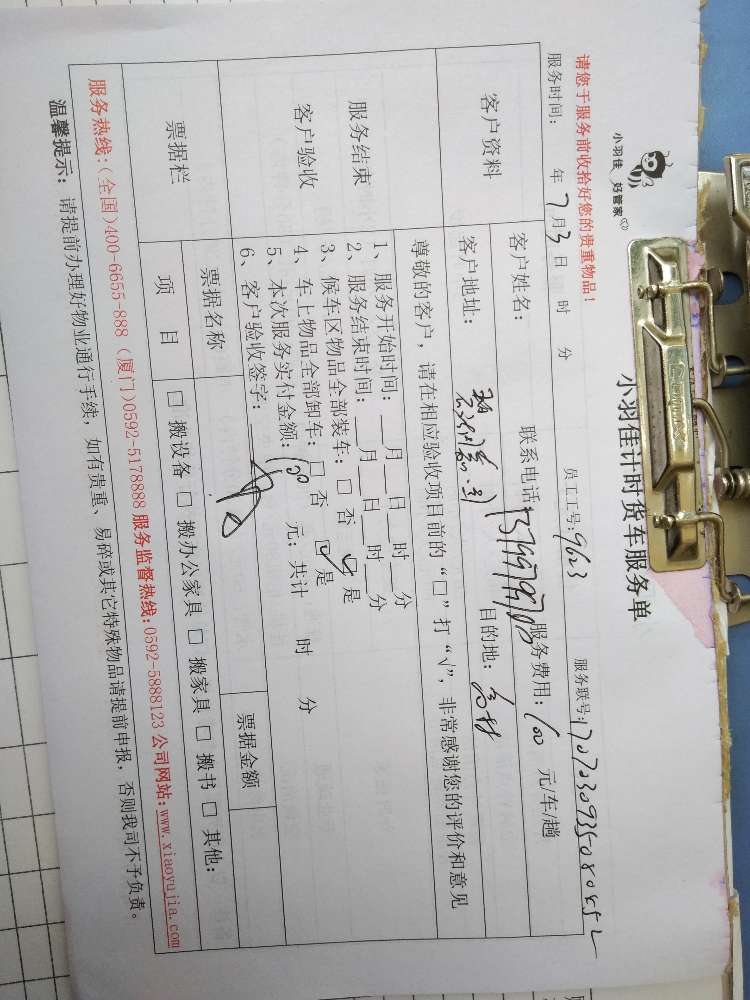 小羽佳 好管家
小羽佳计时货车服务单
请您于服务前收拾好您的贵重物品!
员工工号:9623 服务联号:
服务时间: 年 7月3日 时 分
客户资料 客户姓名: 联系电话 服务费用:100 元/车/趟
客户地址: 目的地:
服务结束 客户验收
尊敬的客户,请在相应验收项目前的“□”打“√”,非常感谢您的评价和意见
1、服务开始时间:__月__日__时__分
2、服务结束时间:__月__日__时__分
3、候车区物品全部装车:□ 否 ☑ 是
4、车上物品全部卸车:□ 否 ☑ 是
5、本次服务实付金额:100 元;共计 时 分
6、客户验收签字:
票据栏 票据名称 票据金额
项 目 □ 搬设备 □ 搬办公家具 □ 搬家具 □ 搬书 □ 其他:
服务热线:(全国)400-6655-888 (厦门)0592-5178888 服务监督热线:0592-5888123 公司网站:www.xiaoyujia.com
温馨提示: 请提前办理好物业通行手续,如有贵重、易碎或其它特殊物品请提前申报,否则我司不予负责。